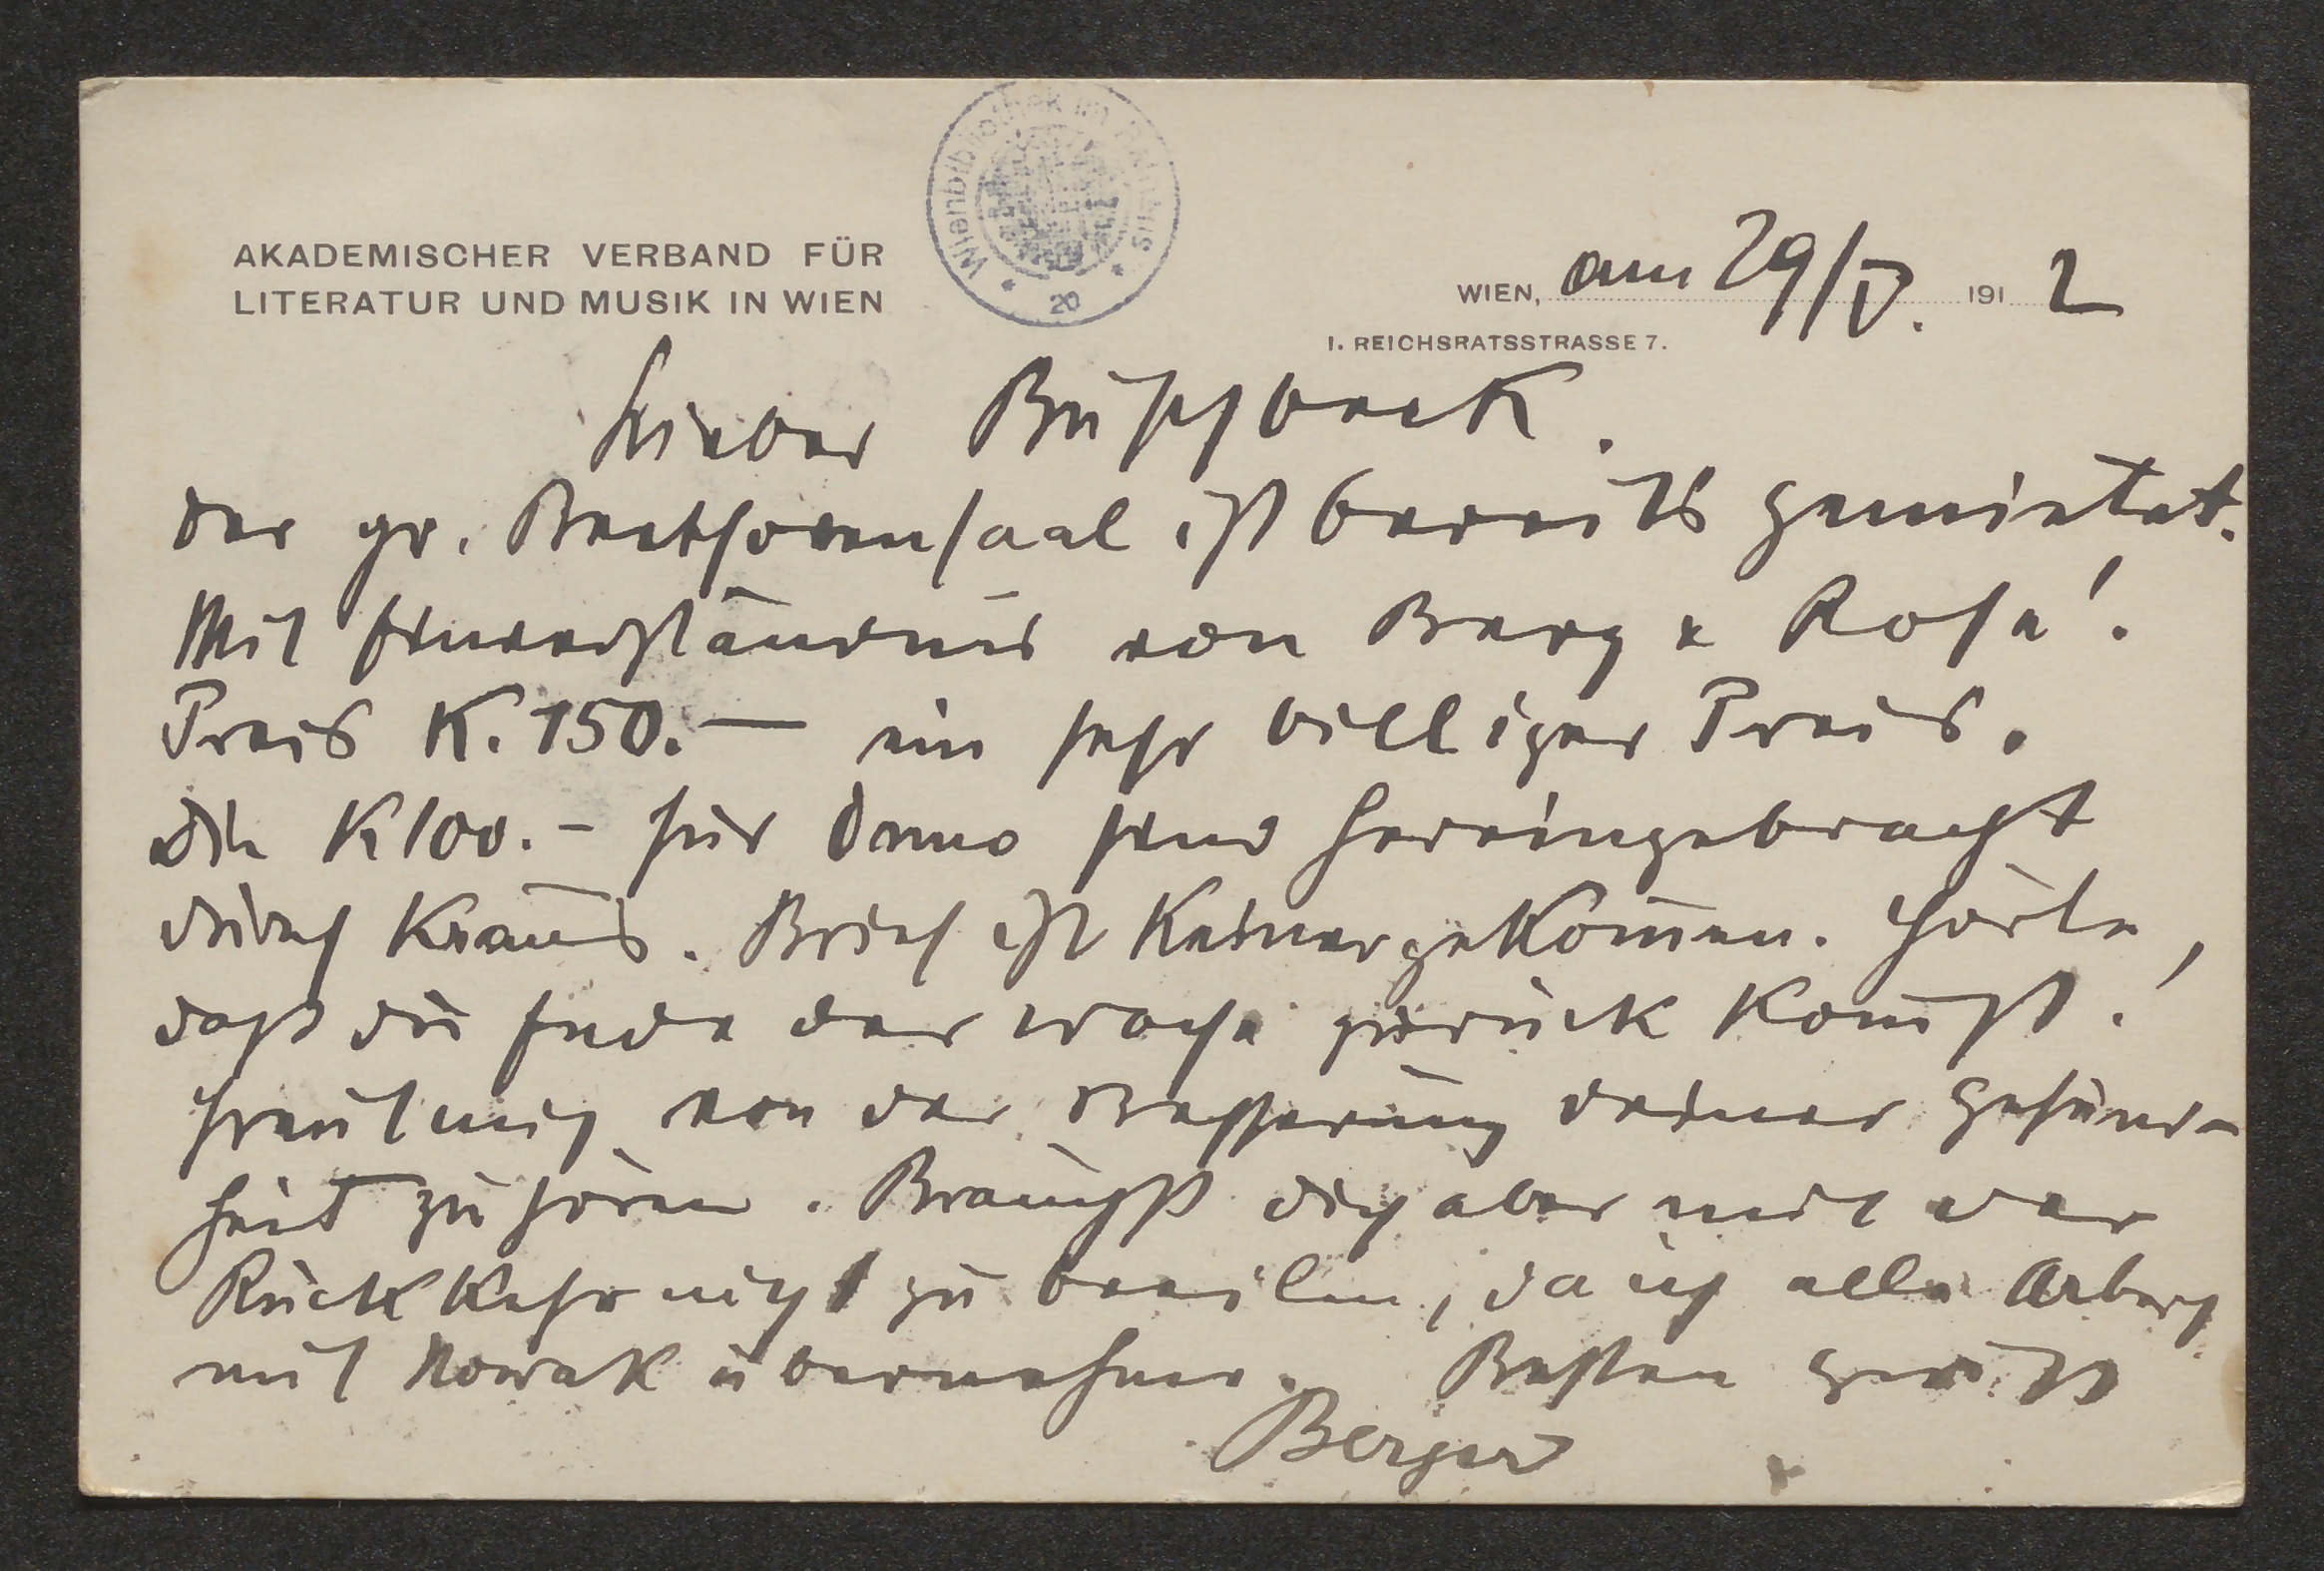 Wienbibliothek im Rathaus
20
AKADEMISCHER VERBAND FÜR
LITERATUR UND MUSIK IN WIEN
WIEN, am 29/V. 191 2
I. REICHSRATSSTRASSE 7.
Lieber Buschbeck.
der gr. Beethovensaal ist bereits gemietet.
Mit Einverständnis von Berg & Rosé!
Preis K. 150.— ein sehr billiger Preis.
Die K 100.- für sind hereingebracht
durch Kraus. Brief ist keiner gekom̅en. Hörte,
daß du Ende der Woche zurück kom̅st!
Freut mich von der Besserung deiner Gesund-
heit zu hören. Brauchst dich aber mit der
Rückkehr nicht zu beeilen, da ich alle
mit Nowak übernehme. Besten Gruß
Berger